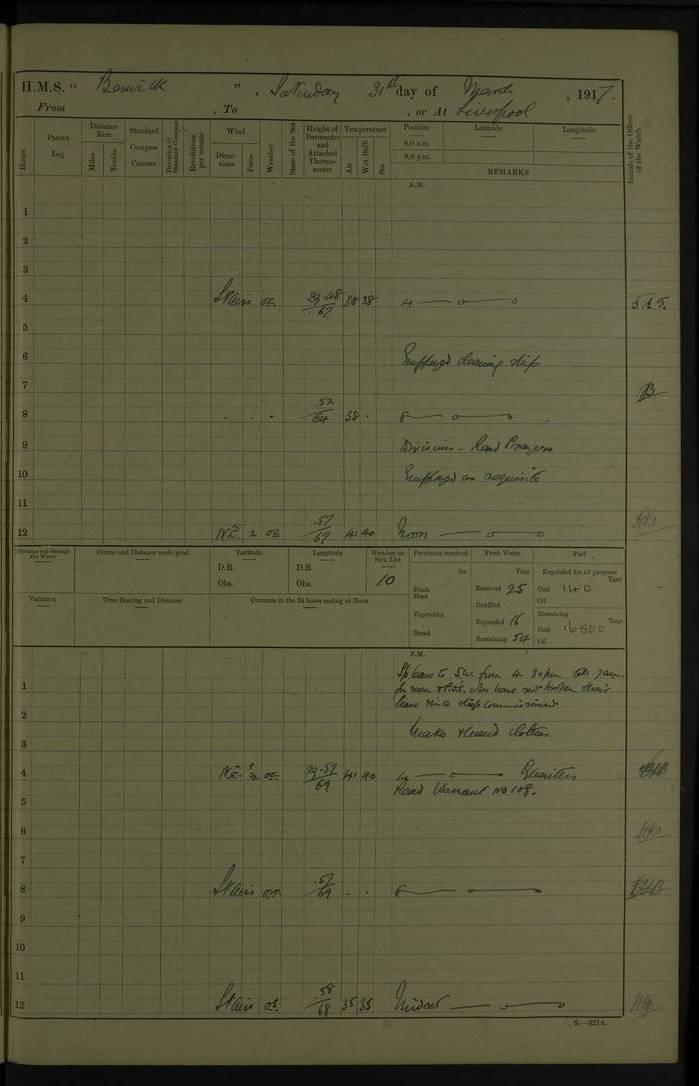 H.M.S. "Berwick", Saturday 31st day of March, 1917.
From , To , or At Liverpool
Hours
Patent Log
Distance Run
Miles
Tenths
Standard Compass Courses
Deviation of Standard Compass
Revolutions per minute
Wind
Directions
Force
Weather
State of the Sea
Height of Barometer and Attached Thermometer
Temperature
Air
Wet Bulb
Sea
Position
8.0 a.m.
8.0 p.m.
Latitude
Longitude
REMARKS
Initials of the Officer of the Watch
A.M.
1
2
3
4 29.48 67 38 38 4
5
6 Employed cleaning ship
7
8 .52 64 38 8
9 Divisions - Read Prayers
10 Employed as requisite
11
12 NE 2 .57 67 41 40 Noon
Distance run through the Water
Course and Distance made good
Latitude
D.R.
Obs.
Longitude
D.R.
Obs.
Number on Sick List
10
Provisions received
lbs.
Fresh Meat
Vegetables
Bread
Fresh Water
Tons
Received 25
Distilled
Expended 16
Remaining 54
Fuel
Expended for all purposes
Tons
Coal 140
Oil
Remaining
Tons
Coal
Oil
Variation
True Bearing and Distance
Currents in the 24 hours ending at Noon
P.M.
leave to
1 leave not broken their
leave since ship commissioned
2 Make & mend clothes
3
4 NE 29.57 69 41 40 4 Quarters
Read Warrant No 108.
5
6
7
8 .57 69 8
9
10
11
12 .58 68 35 35 Midnt
S.—321a.